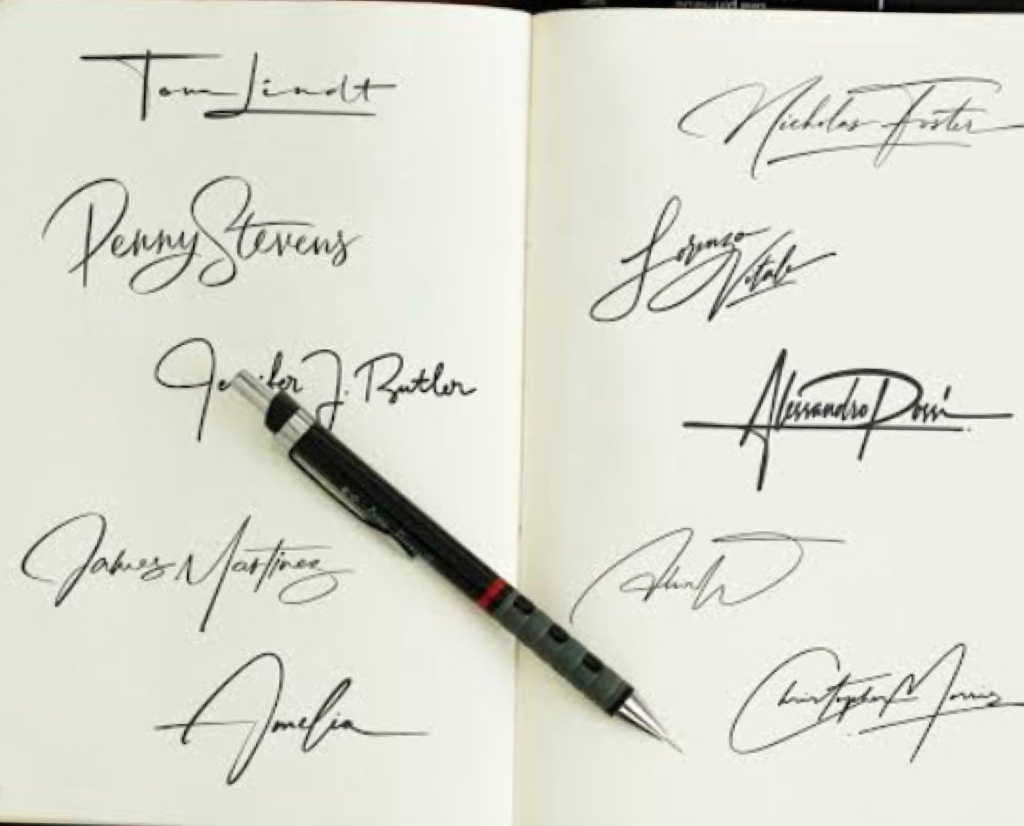 Tom Lindt
Penny Stevens
Jennifer J. Butler
James Martinez
Amelia
Nicholas Foster
Lorenzo
Vitale
Alessandro Rossi
Christopher Morris